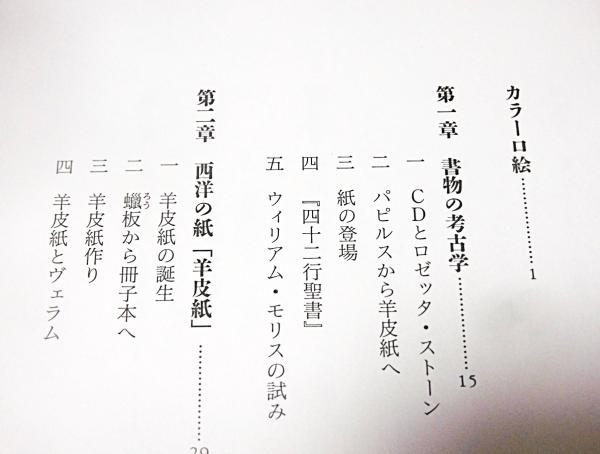 カラー口絵………………1
第一章 書物の考古学………………15
一 CDとロゼッタ・ストーン
二 パピルスから羊皮紙へ
三 紙の登場
四 『四十二行聖書』
五 ウィリアム・モリスの試み
第二章 西洋の紙「羊皮紙」………………29
一 羊皮紙の誕生
二 蠟板から冊子本へ
ろう
三 羊皮紙作り
四 羊皮紙とヴェラム